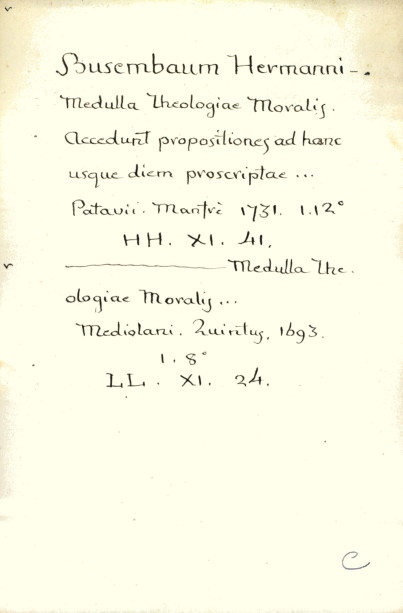 Busembaum Hermanni -.
Medulla Theologiae Moralis.
Accedunt propositiones ad hanc
usque diem proscriptae ...
Patavii. Manfrè 1731. 1.12°
HH. XI. 41.
——— Medulla The.
ologiae Moralis ...
Mediolani. Quintus, 1693.
1. 8°
LL. XI. 24.
C